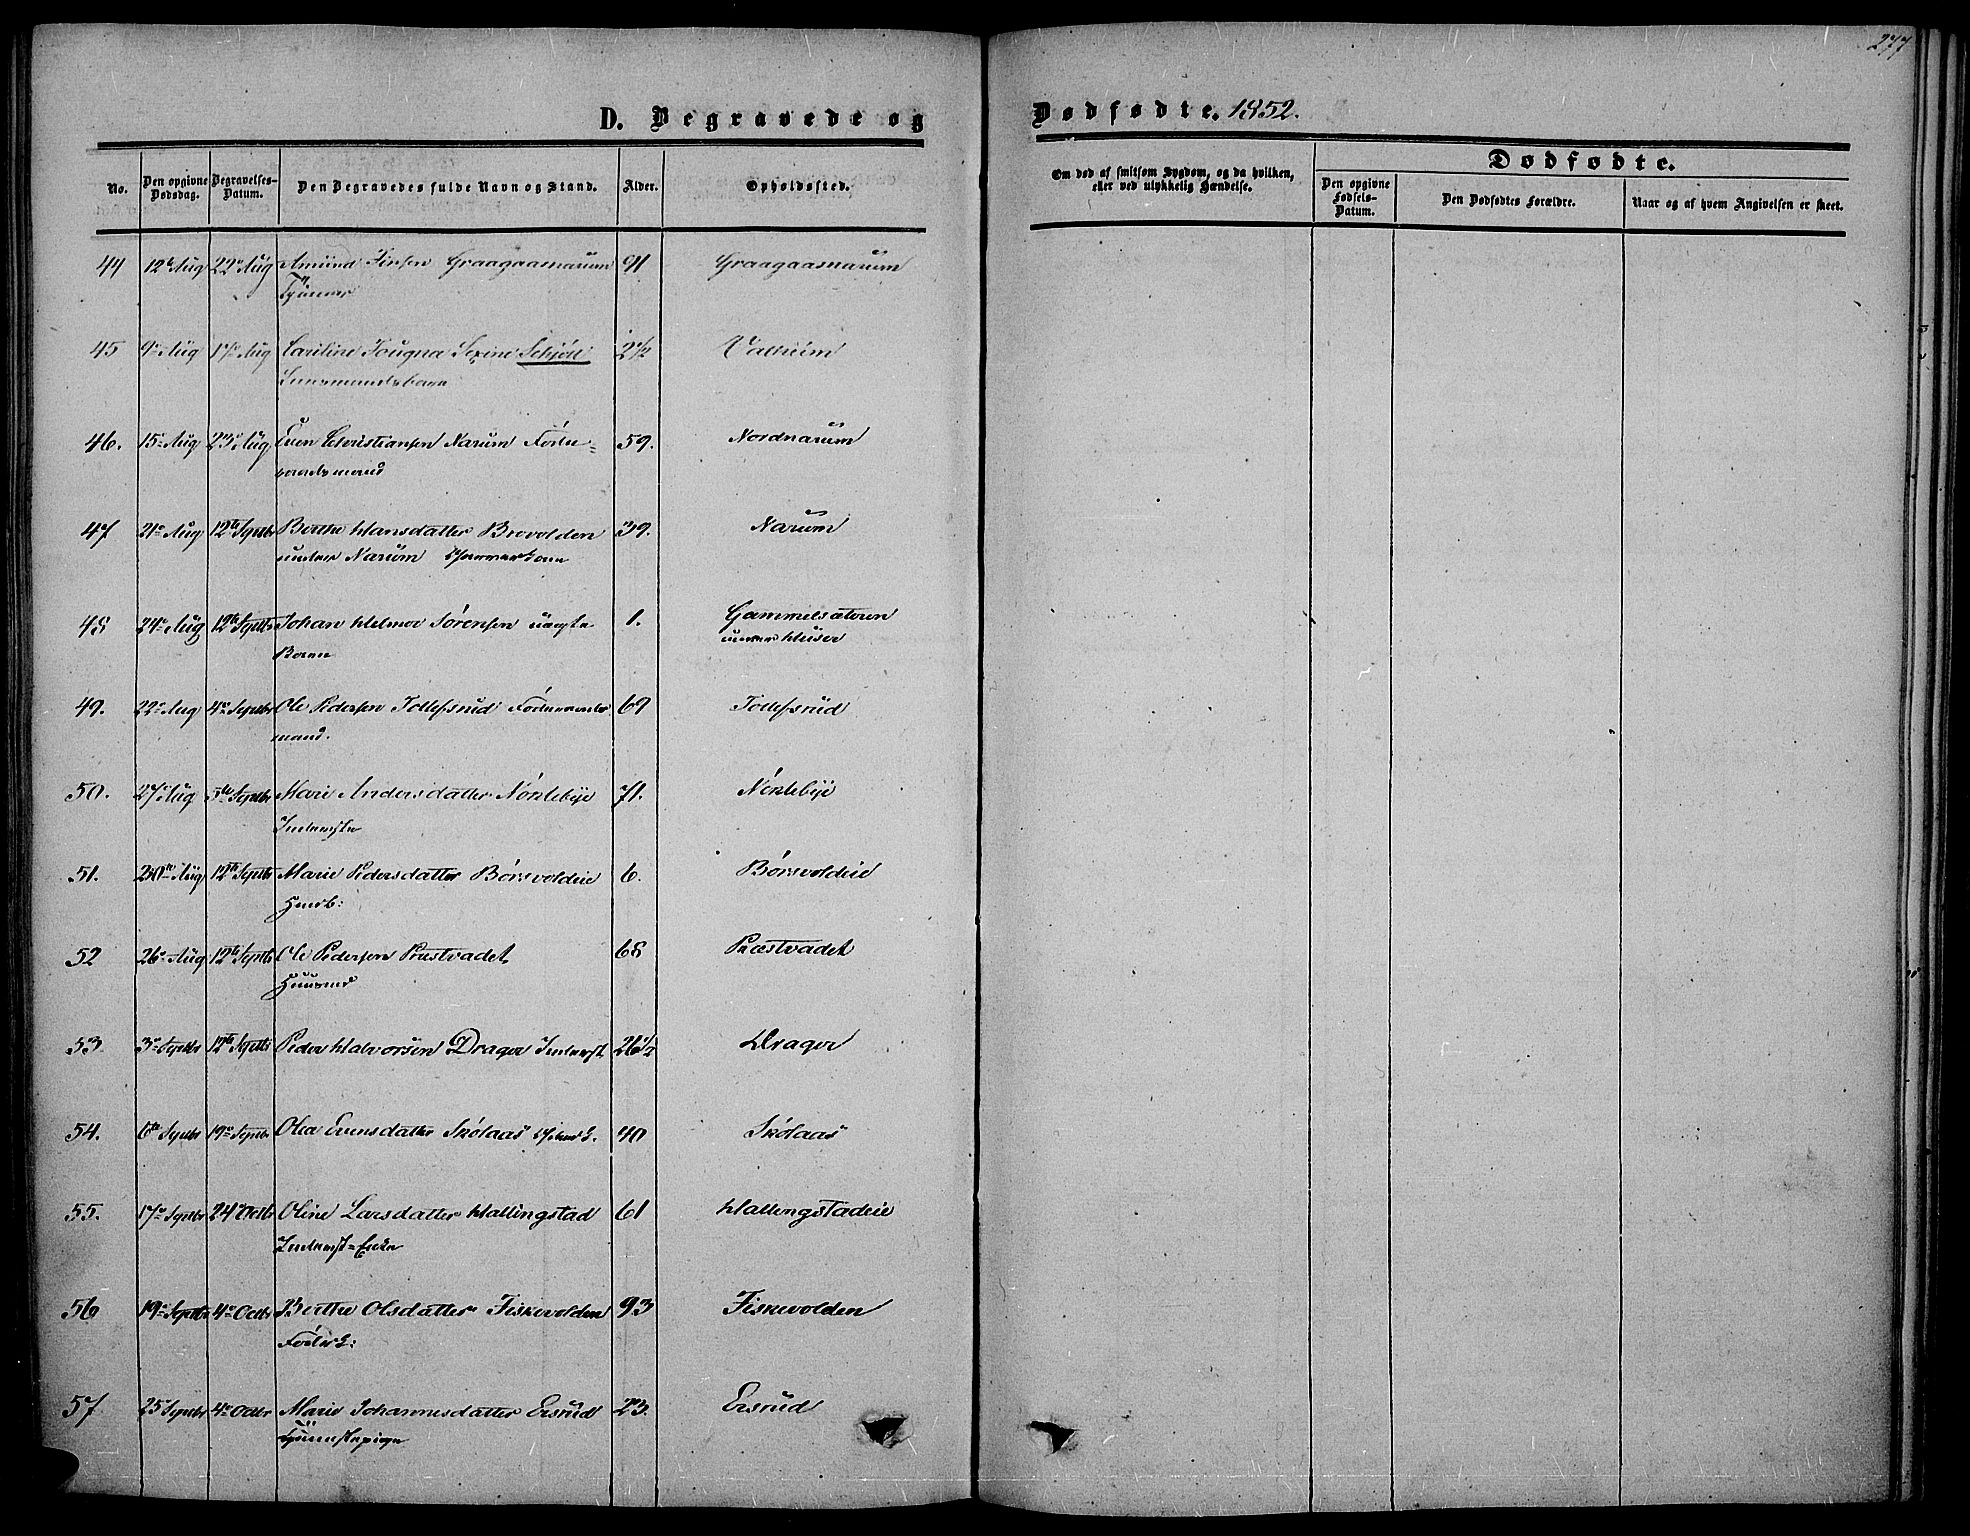 277
D. Begravede og Dødfødte. 1852.
No.
Den opgivne Dødsdag.
Begravelses-Datum.
Den Begravedes fulde Navn og Stand.
Alder.
Opholdssted.
Om død af smitsom Sygdom, og da hvilken, eller ved ulykkelig Hændelse.
Dødfødte.
Den opgivne Fødsels-Datum.
Den Dødfødtes Forældre.
Naar og af hvem Angivelsen er skeet.
44 12te Aug 22de Aug Amund Jensen Graagaasnarum 91 Graagaasnarum
45 9de Aug 17de Aug Schjøll 2 1/2
46. 15de Aug 23de Aug Christiansen Narum 59. Nordnarum
47 21de Aug 12te Septbr Berthe Hansdatter Brovolden 39. Narum
under Narum
48 24de Aug 12te Septbr Johan Helmer Sørensen uægte 1. Gammelsæteren
Barn under Huser
49. 22de Aug 4de Septbr Ole Pedersen Tollefsrud 69 Tollefsrud
mand.
50. 27de Aug 5te Septbr Marie Andersdatter Nøklebye 71. Nøklebye
51. Aug 12te Septbr Marie Pedersdatter Børsvoldeie 6. Børsvoldeie
52 26de Aug 12te Septbr Ole Pedersen Præstvadet 68 Præstvadet
53 3de Septbr 12te Septbr Peder Halvorsen Drager Inderst 26 1/2 Drager
54. 6te Septbr 19de Septbr Olea Evensdatter Skølaas 40 Skølaas
55. 17de Septbr 24de Octbr Oline Larsdatter Hallingstad 61 Hallingstadeie
Inderst-Enke
56 19de Septbr 4de Octbr Berthe Olsdatter Fiskevolden 93 Fiskevolden
57 25de Septbr 4de Octbr Marie Johannesdatter Ersrud 23. Ersrud
Tjenestepige